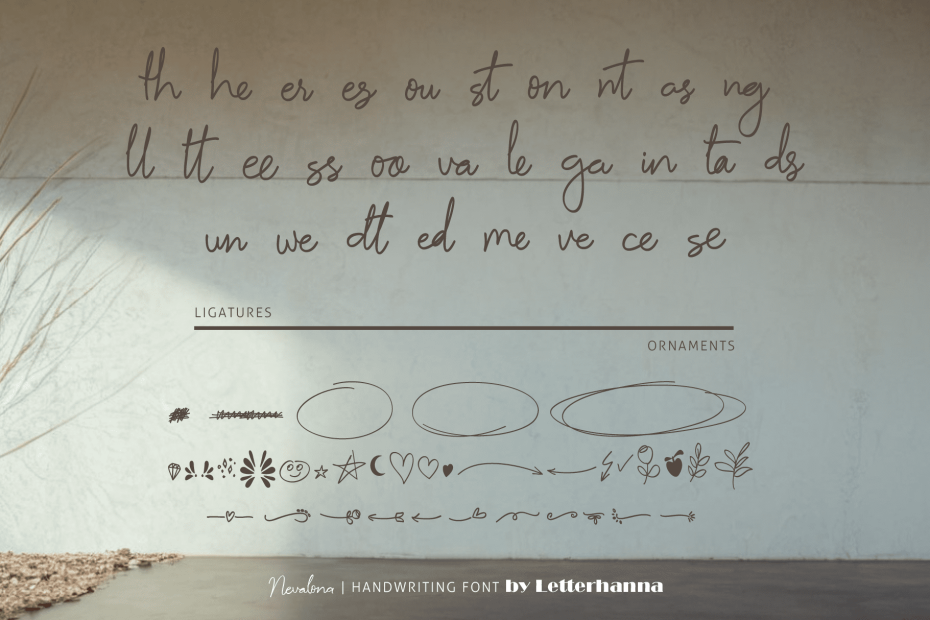 th he er es ou st on nt as ng
ll tt ee ss oo va le ga in ta ds
un we dt ed me ve ce se
LIGATURES
ORNAMENTS
Nevalona | HANDWRITING FONT by Letterhanna